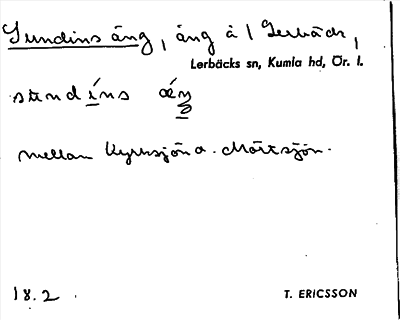 Sundins äng, äng å 1 Lerbäck,
Lerbäcks sn, Kumla hd, Ör. l.
mellan Kyrksjön o. Mörtsjön.
18.2 T. ERICSSON